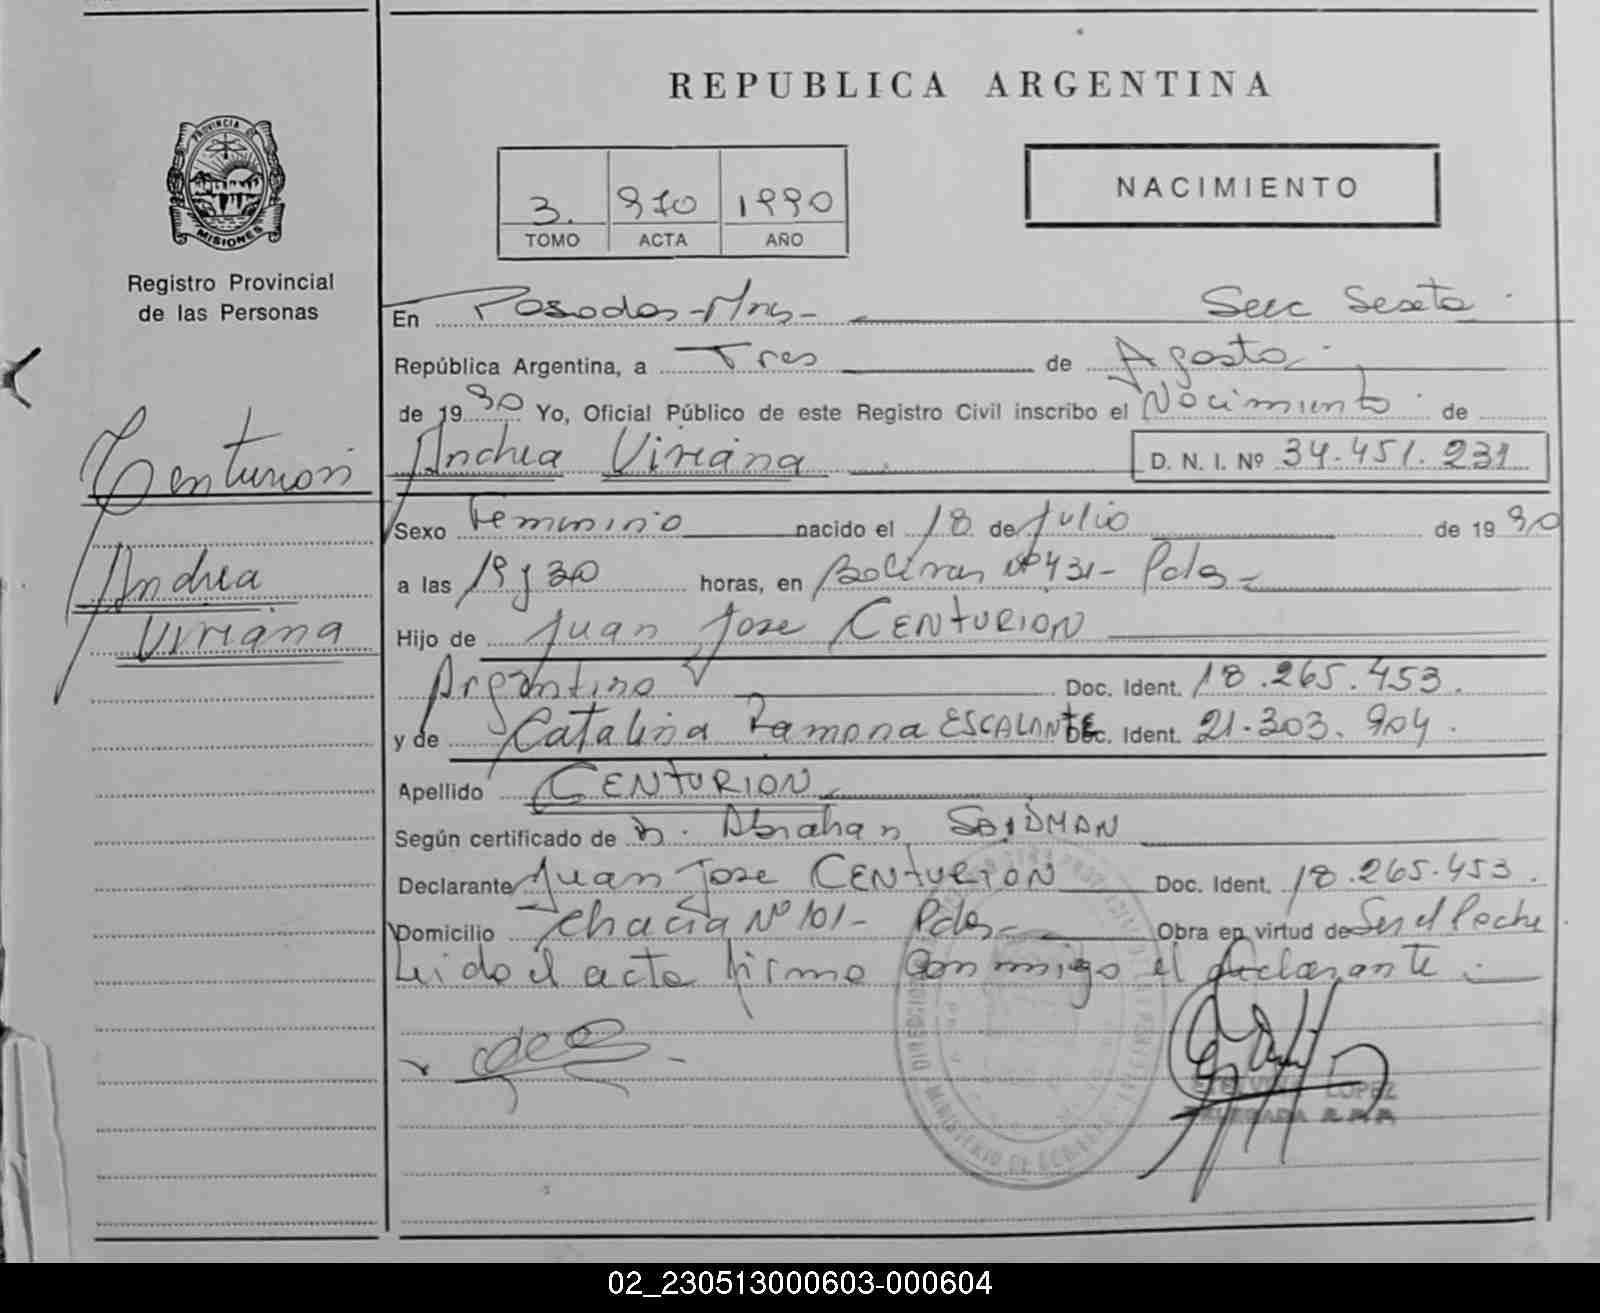 REPUBLICA ARGENTINA
PROVINCIA DE
MISIONES
Registro Provincial
de las Personas
3. 970 1990
TOMO ACTA AÑO
NACIMIENTO
En Posadas-Mns- Secc Sexta
República Argentina, a Tres de Agosto
de 1990 Yo, Oficial Público de este Registro Civil inscribo el Nacimiento de
Andrea Viviana D. N. I. Nº 34.451.231
Centurion
Andrea
Viviana
Sexo Femenino nacido el 18 de Julio de 1990
a las 19 y 30 horas, en Bolivar Nº 431- Pdas-
Hijo de Juan Jose CENTURION
Argentino Doc. Ident. 18.265.453.
y de Catalina Ramona ESCALANTE Doc. Ident. 21.303.904.
Apellido CENTURION
Según certificado de D. Abrahan
Declarante Juan Jose CENTURION Doc. Ident. 18.265.453.
Domicilio Nº 101- Pdas- Obra en virtud de
Leido el acta firma conmigo el declarante
LOPEZ
DELEGADA
MINISTERIO DE GOBIERNO
02_230513000603-000604